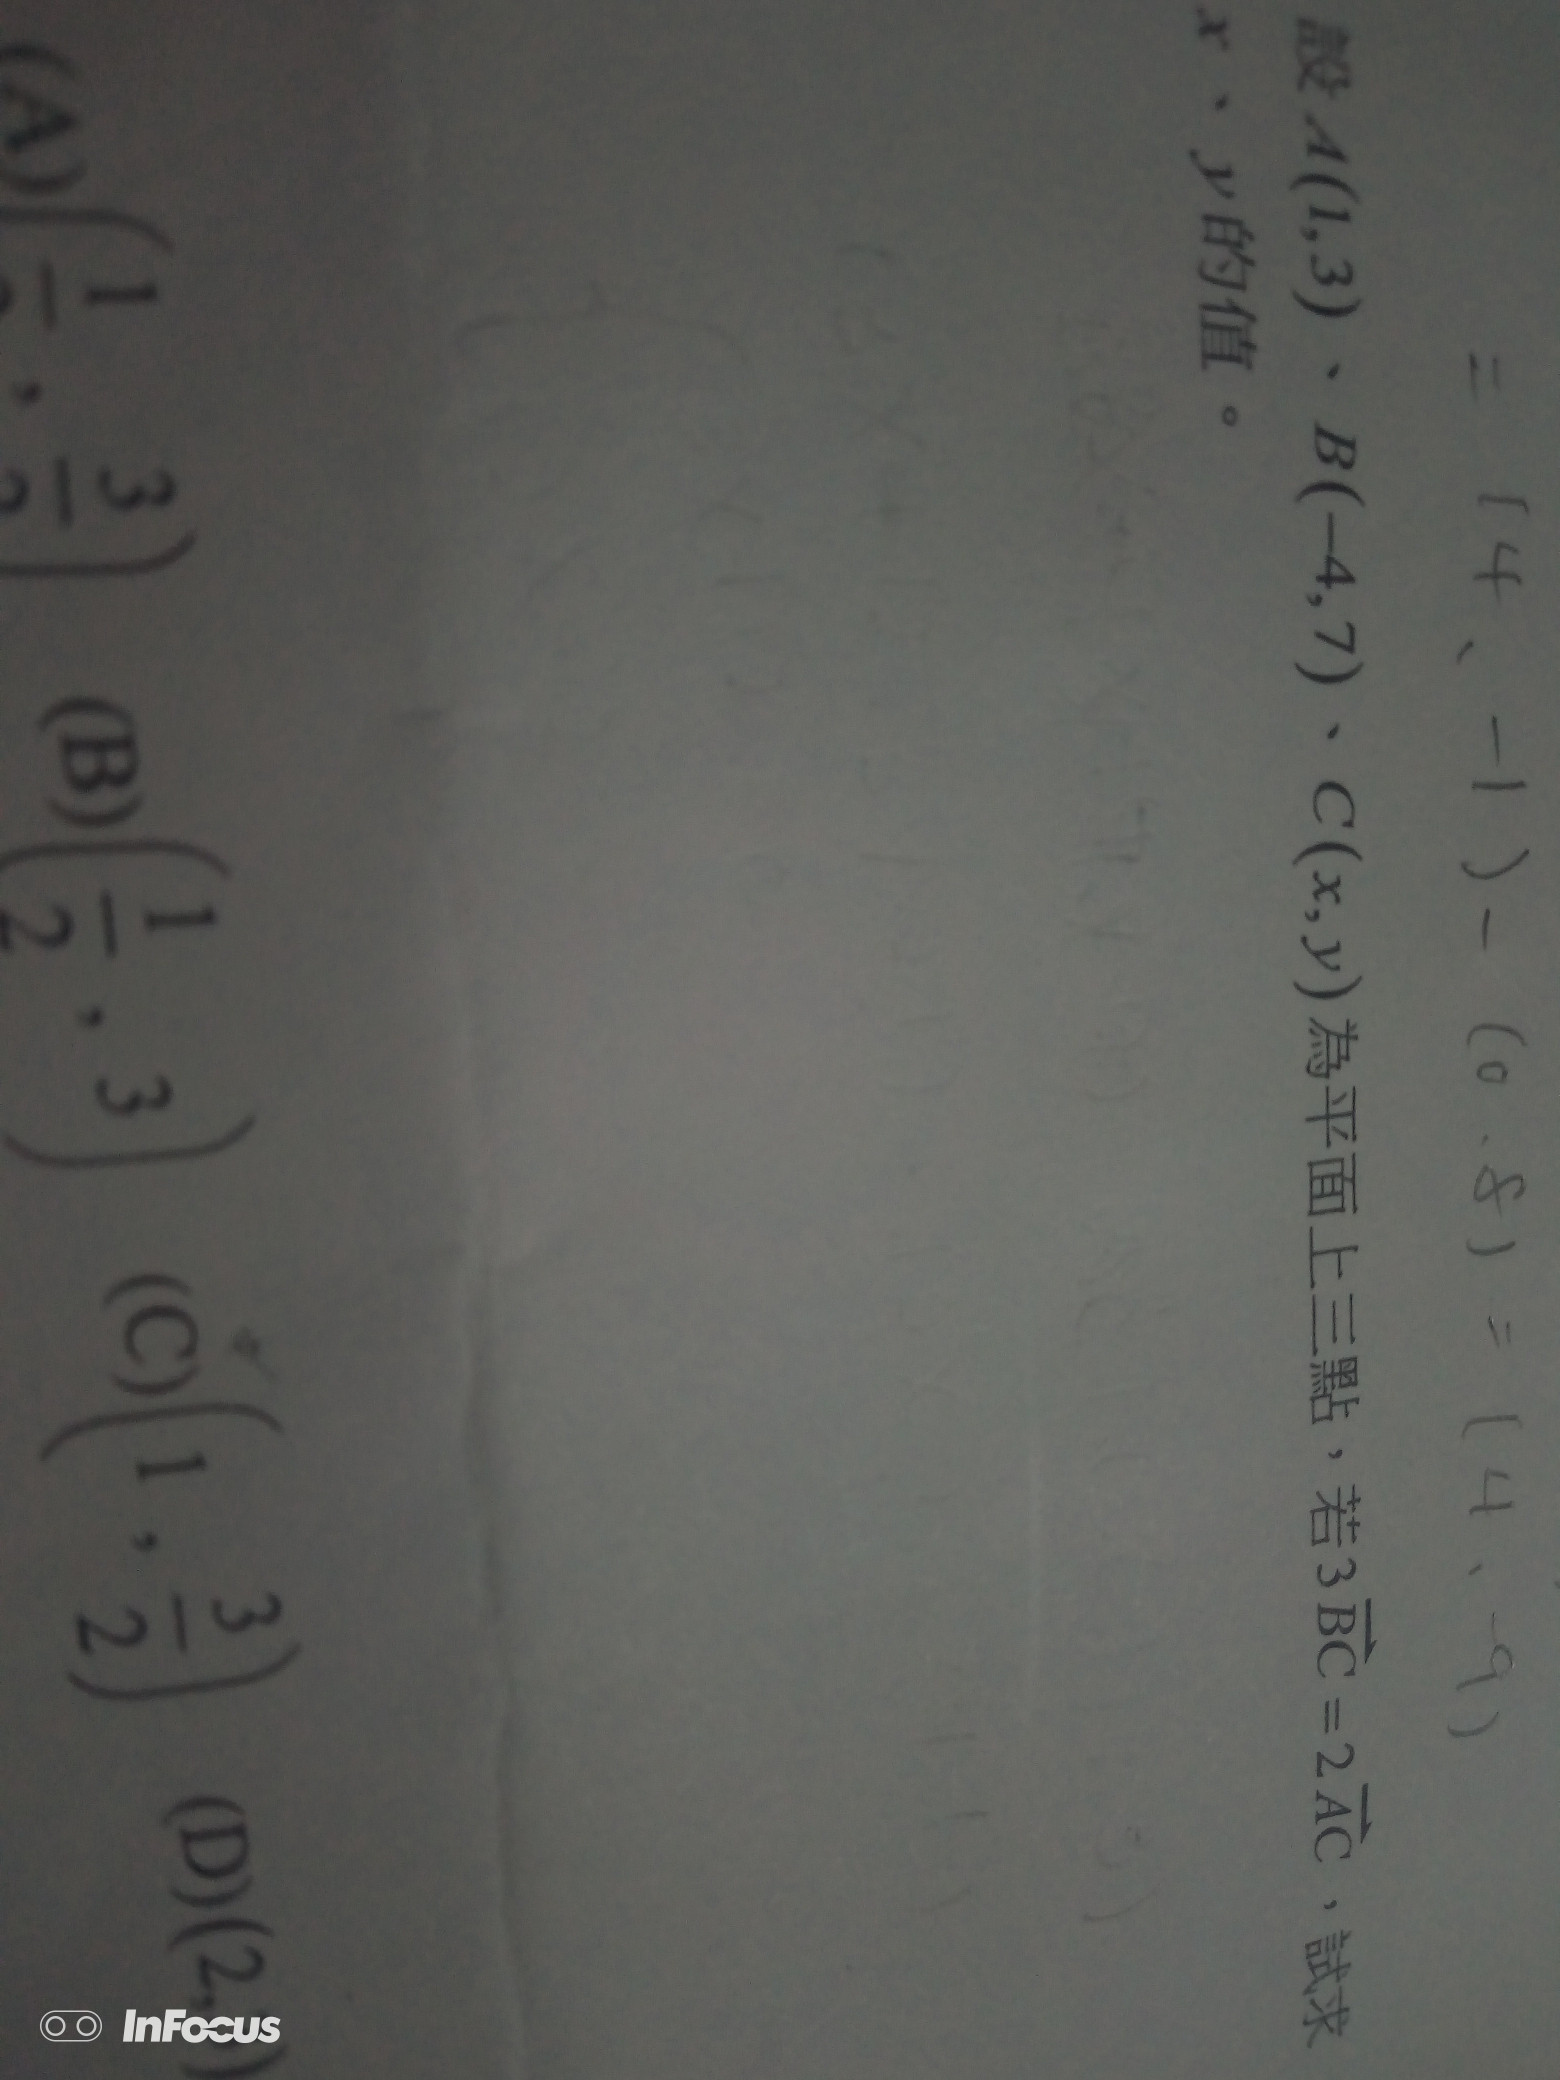 = (4、-1) - (0.8) = (4、-9)
設 A(1,3)、B(-4,7)、C(x,y) 為平面上三點，若 3BC = 2AC，試求
x、y 的值。
(A)(1/2, 3/2) (B)(1/2, 3) (C)(1, 3/2) (D)(2,
InFocus